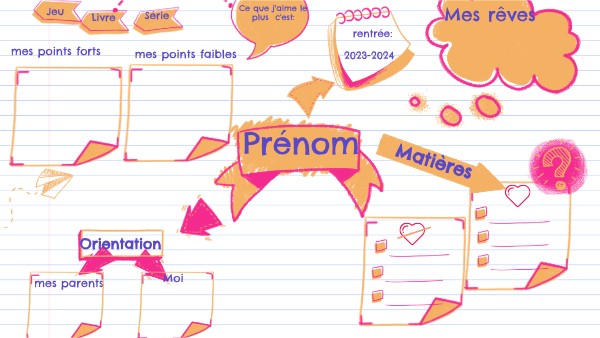 Jeu
Livre
Série
Ce que j'aime le
plus c'est:
rentrée:
2023-2024
Mes rêves
mes points forts
mes points faibles
Prénom
Matières
?
Orientation
mes parents
Moi